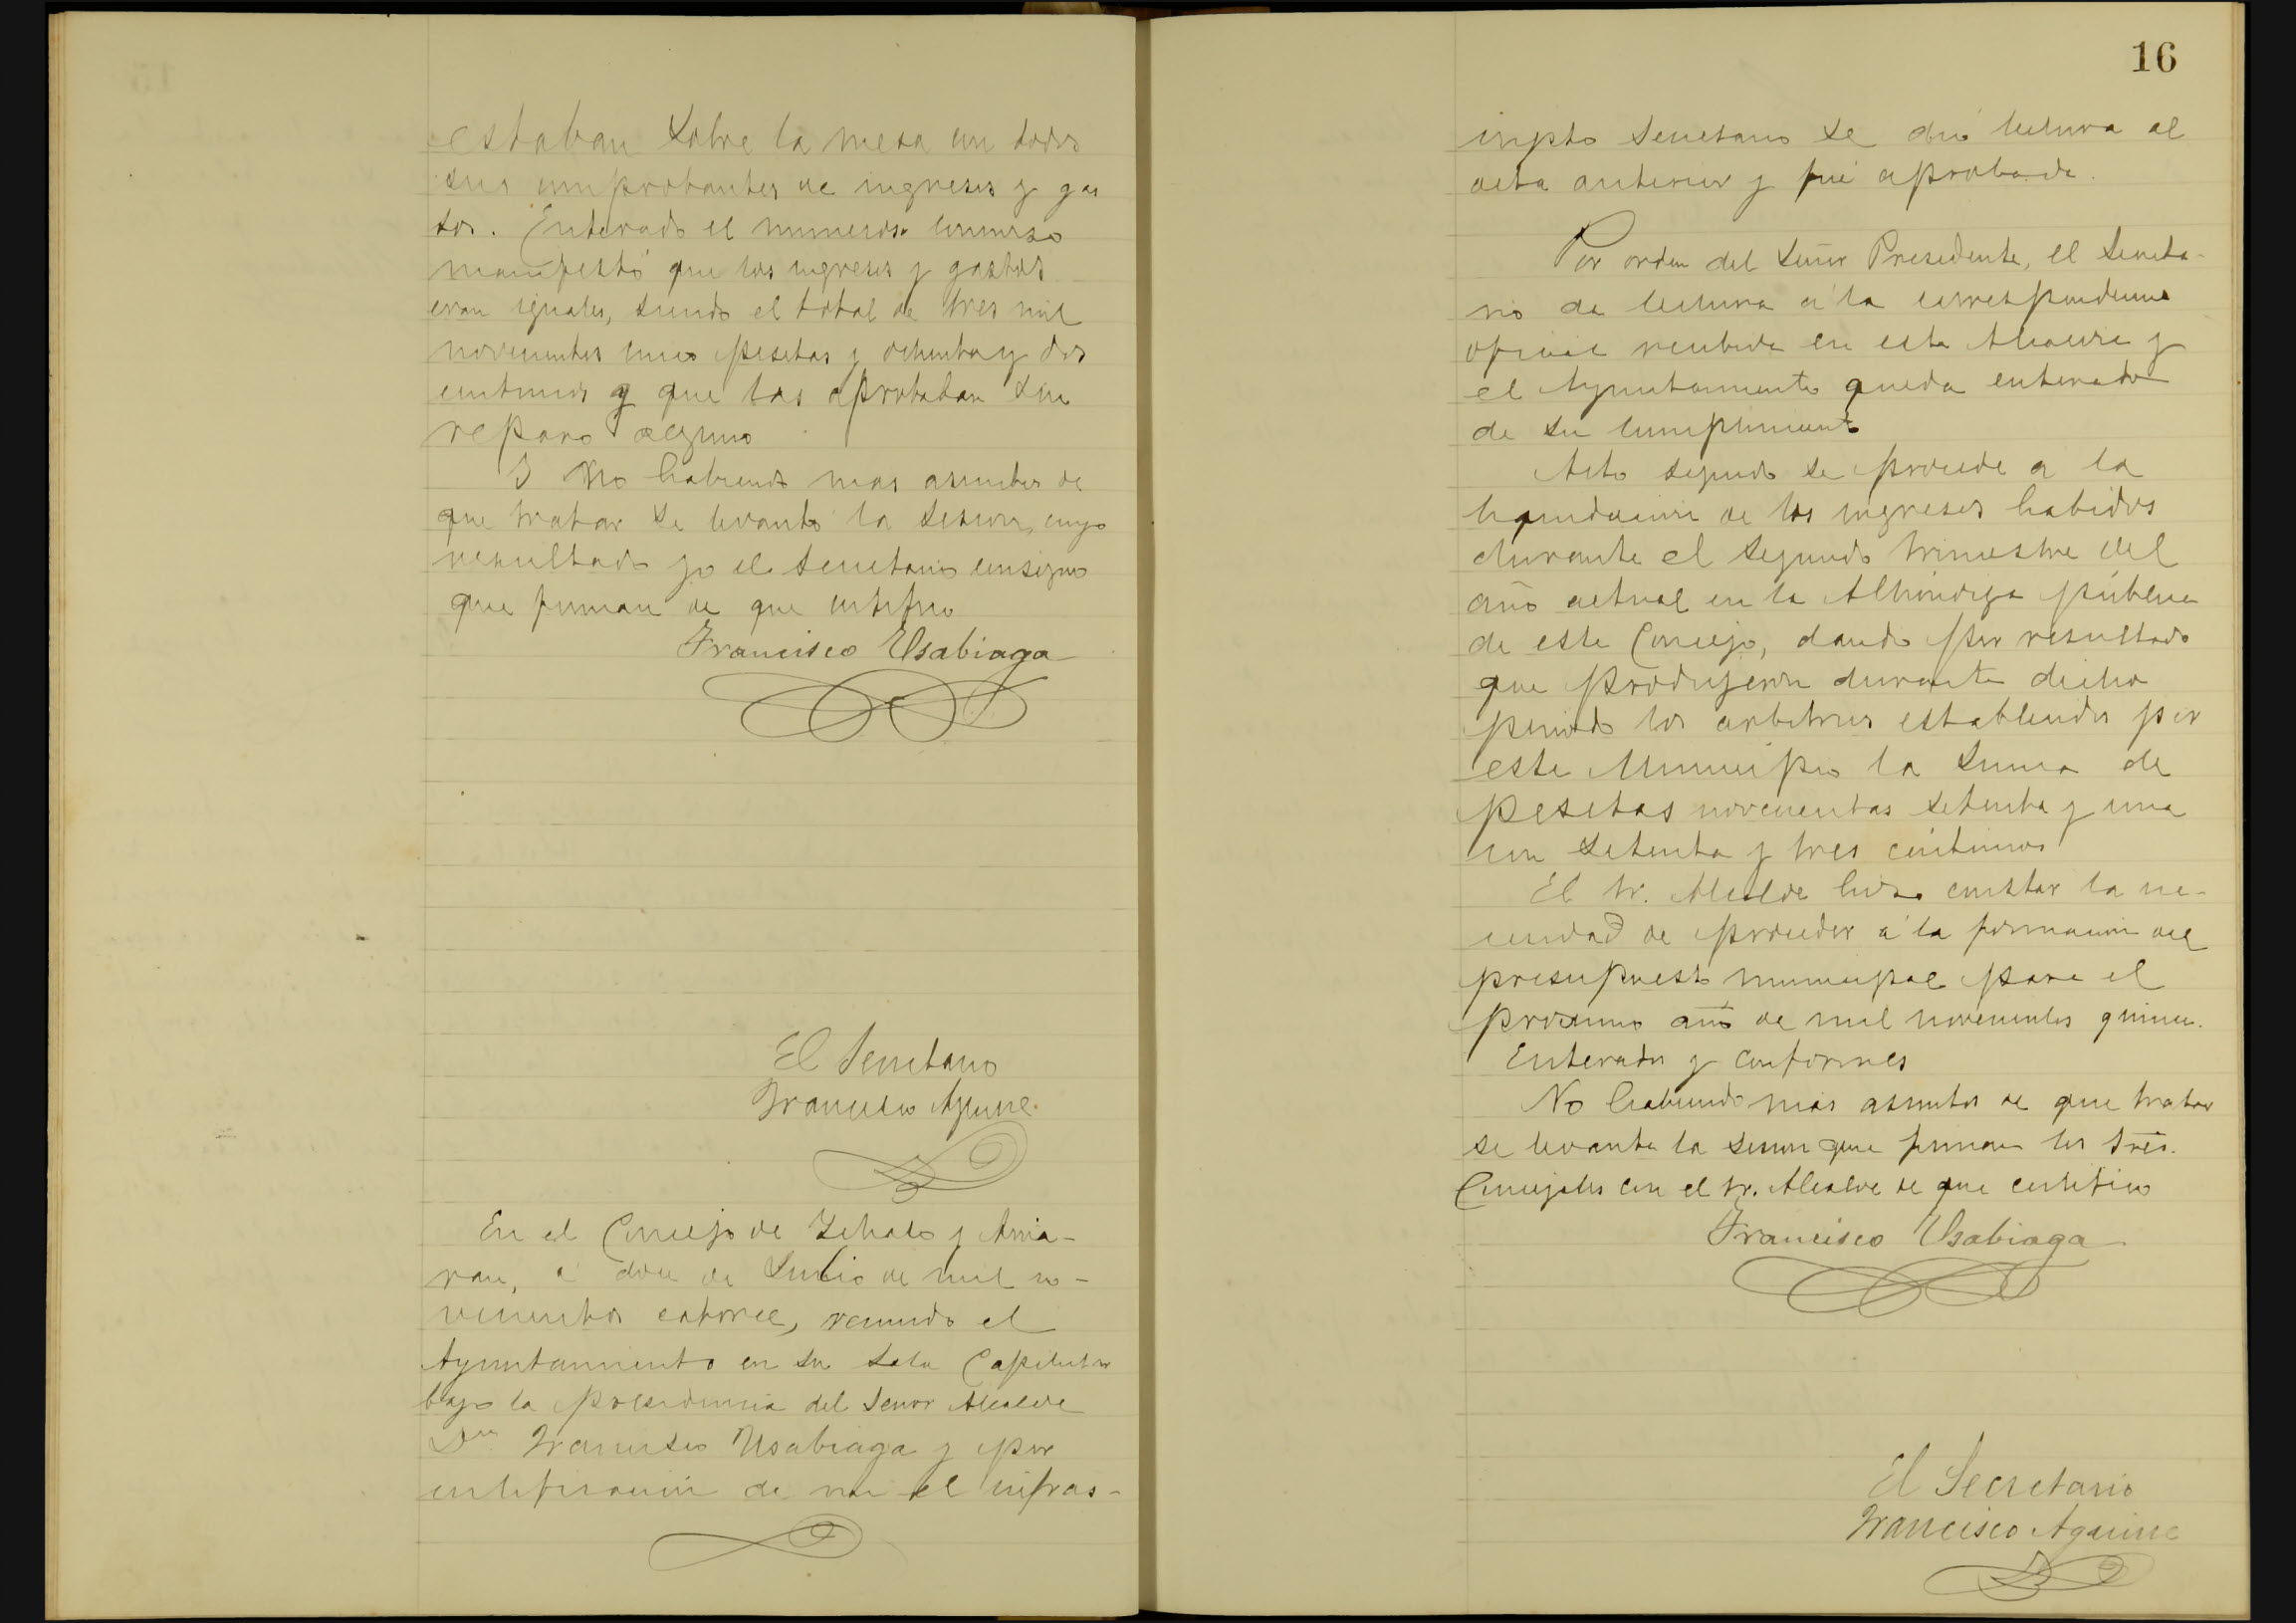 estaban sobre la mesa con todos
sus comprobantes de ingresos y gas
tos. Enterado el numeroso concurso
manifestó que los ingresos y gastos
eran iguales, siendo el total de tres mil
novecientos cinco pesetas y ochenta y dos
centimos y que las aprobaban sin
reparo alguno
Y no habiendo mas asuntos de
que tratar se levantó la sesion, cuyo
resultado yo el Secretario consigno
que firman de que certifico
Francisco Usabiaga
El Secretario
Francisco Aguirre
En el Concejo de Ichaso y Arria-
ran, á doce de Julio de mil no-
vecientos catorce, reunido el
Ayuntamiento en su Sala Capitular
bajo la presidencia del Señor Alcalde
Dn Francisco Usabiaga y por
certificación de mi el infras-
16
cripto Secretario se dió lectura al
acta anterior y fué aprobada.
Por orden del Señor Presidente, el Secreta-
rio da lectura á la correspondencia
oficial recibida en esta Alcaldia y
el Ayuntamiento queda enterado
de su cumplimiento
Acto seguido se procede a la
liquidacion de los ingresos habidos
durante el segundo trimestre del
año actual en la Alhóndiga pública
de este Concejo, dando por resultado
que produjeron durante dicho
periodo los arbitrios establecidos por
este Municipio la suma de
pesetas novecientas setenta y una
con setenta y tres céntimos
El Sr. Alcalde hizo constar la ne-
cesidad de proceder á la formacion del
presupuesto municipal para el
proximo año de mil novecientos quince.
Enterados y conformes
No habiendo más asuntos de que tratar
se levanta la sesion que firman los Sres.
Concejales con el Sr. Alcalde de que certifico
Francisco Usabiaga
El Secretario
Francisco Aguirre